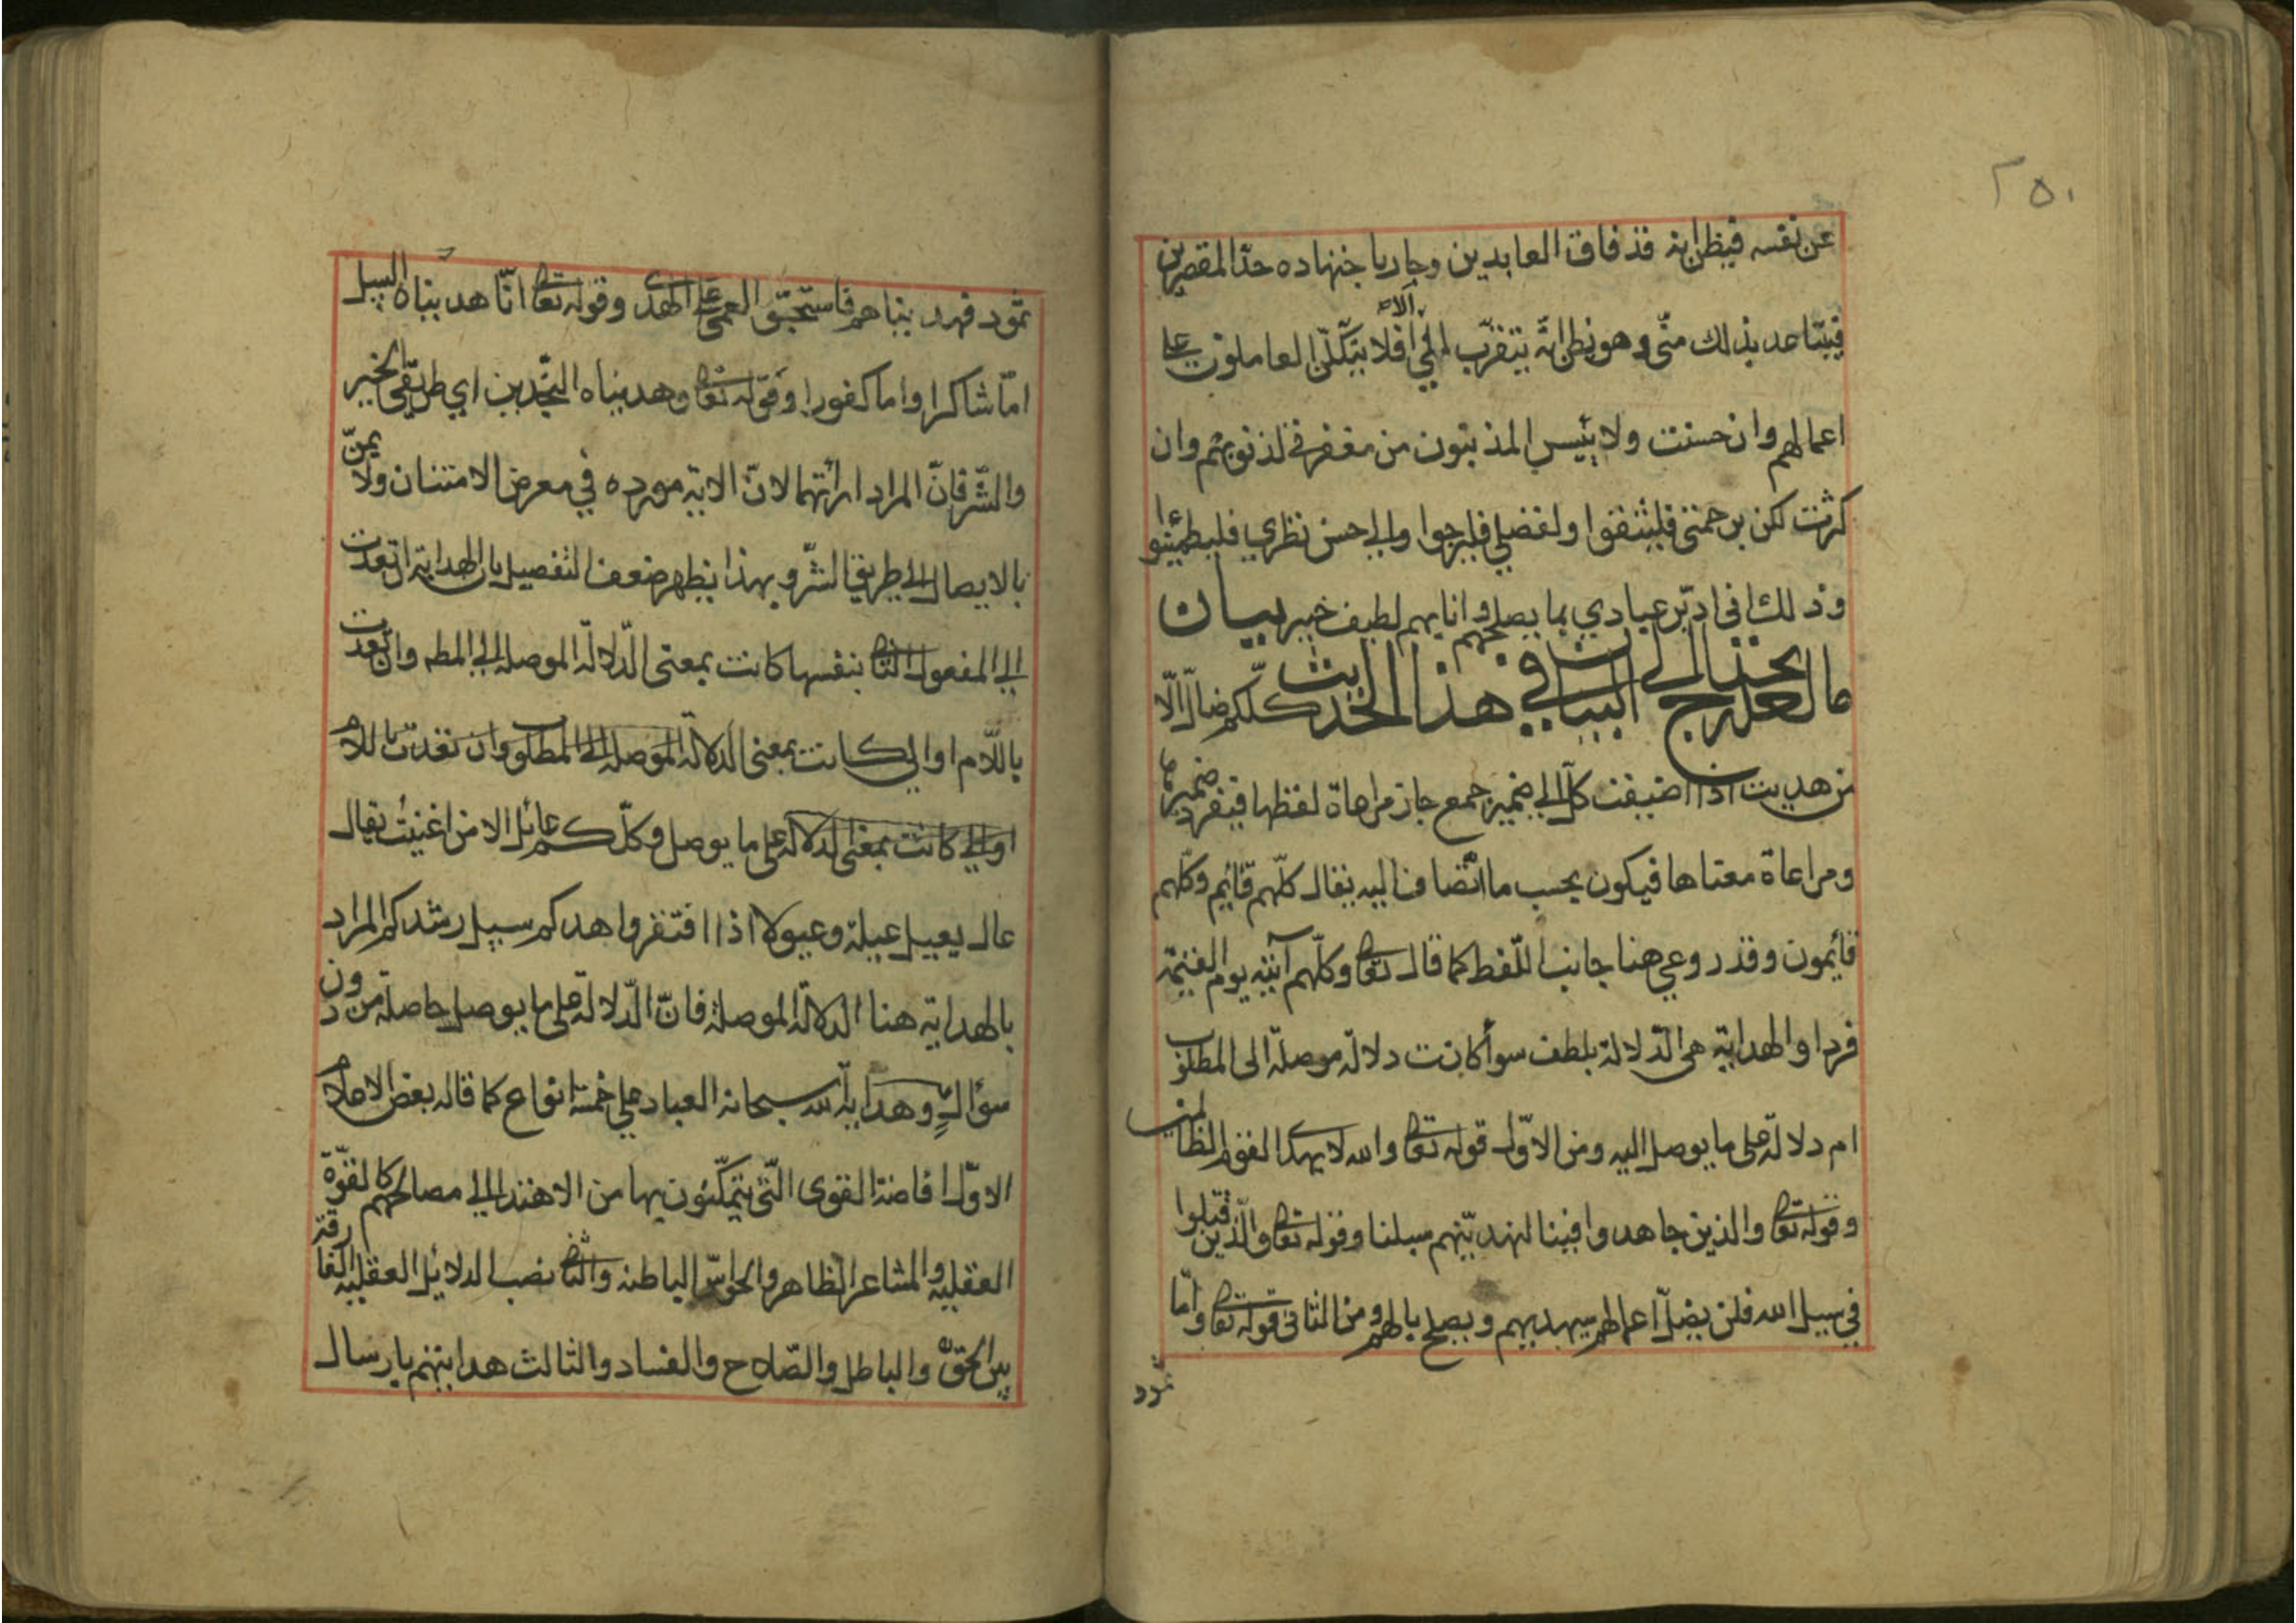 ٢٥٠
عن نفسه فيظن انه قد فاق العابدين وجاز باجتهاده حدّ المقصرين
فيتباعد بذلك منّي وهو يظن انّه يتقرّب إليّ ألا فلا يتّكلنّ العاملون على
اعمالهم وان حسنت ولا ييئس المذنبون من مغفرتي لذنوبهم وان
كثرت لكن برحمتي فليثقوا ولفضلي فليرجوا والى حسن نظري فليطمئنوا
وذلك اني ادبّر عبادي بما يصلحهم وانا بهم لطيف خبير بيان
ما لعله يحتاج الى البيان في هذا الحديث كلّكم ضالّ الّا
من هديت اذا اضيفت كلّ الى ضمير جمع جاز مراعاة لفظها فيفرد ضميرها
ومراعاة معناها فيكون بحسب ما تضاف اليه يقال كلّهم قائم وكلّهم
قائمون وقد روعي هنا جانب اللّفظ كما قال تعا وكلّهم آتيه يوم القيمة
فردا والهداية هي الدّلالة بلطف سوأ كانت دلالة موصلة الى المطلوب
ام دلالة على ما يوصل اليه ومن الاوّل قوله تعا والله لا يهدي القوم الظالمين
وقوله تعا والذين جاهدوا فينا لنهدينّهم سبلنا وقوله تعا والّذين قتلوا
في سبيل الله فلن يضلّ اعمالهم سيهديهم ويصلح بالهم ومن الثاني قوله تعا وامّا
ثمود
ثمود فهديناهم فاستحبّوا العمى على الهدى وقوله تعا انّا هديناه السبيل
امّا شاكرا واما كفورا وقوله تعا وهديناه النجدين اي طريقي الخير
والشّر فانّ المراد ارائتهما لانّ الاية مورده في معرض الامتنان ولا يمنّ
بالايصال الى طريق الشّر وبهذا يظهر ضعف التفصيل بان الهداية ان تعدت
الى المفعول الثا بنفسها كانت بمعنى الدّلالة الموصلة الى المط وان تعدت
باللّام او الى كانت بمعنى الدلالة الموصلة الى المطلوب وان تعدت باللام
او الى كانت بمعنى الدلالة على ما يوصل وكلّكم عائل الا من اغنيت يقال
عال يعيل عيلة وعيولا اذا افتقر واهدكم سبيل رشدكم المراد
بالهداية هنا الدلالة الموصلة فانّ الدّلالة على ما يوصل حاصلة من دون
سؤال وهداية الله سبحانه العباد على خمسة انواع كما قاله بعض الاعلام
الاوّل افاضة القوى الّتي يتمكّنون بها من الاهتداء الى مصالحهم كالقوّة
العقليه والمشاعر الظاهره والحواسّ الباطنه والثا نصب الدلائل العقليه الفارقة
بين الحق والباطل والصّلاح والفساد والثالث هدايتهم بارسال